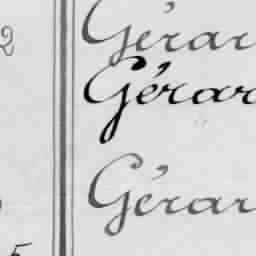 2 Gérar
Gérar
Gérar
5